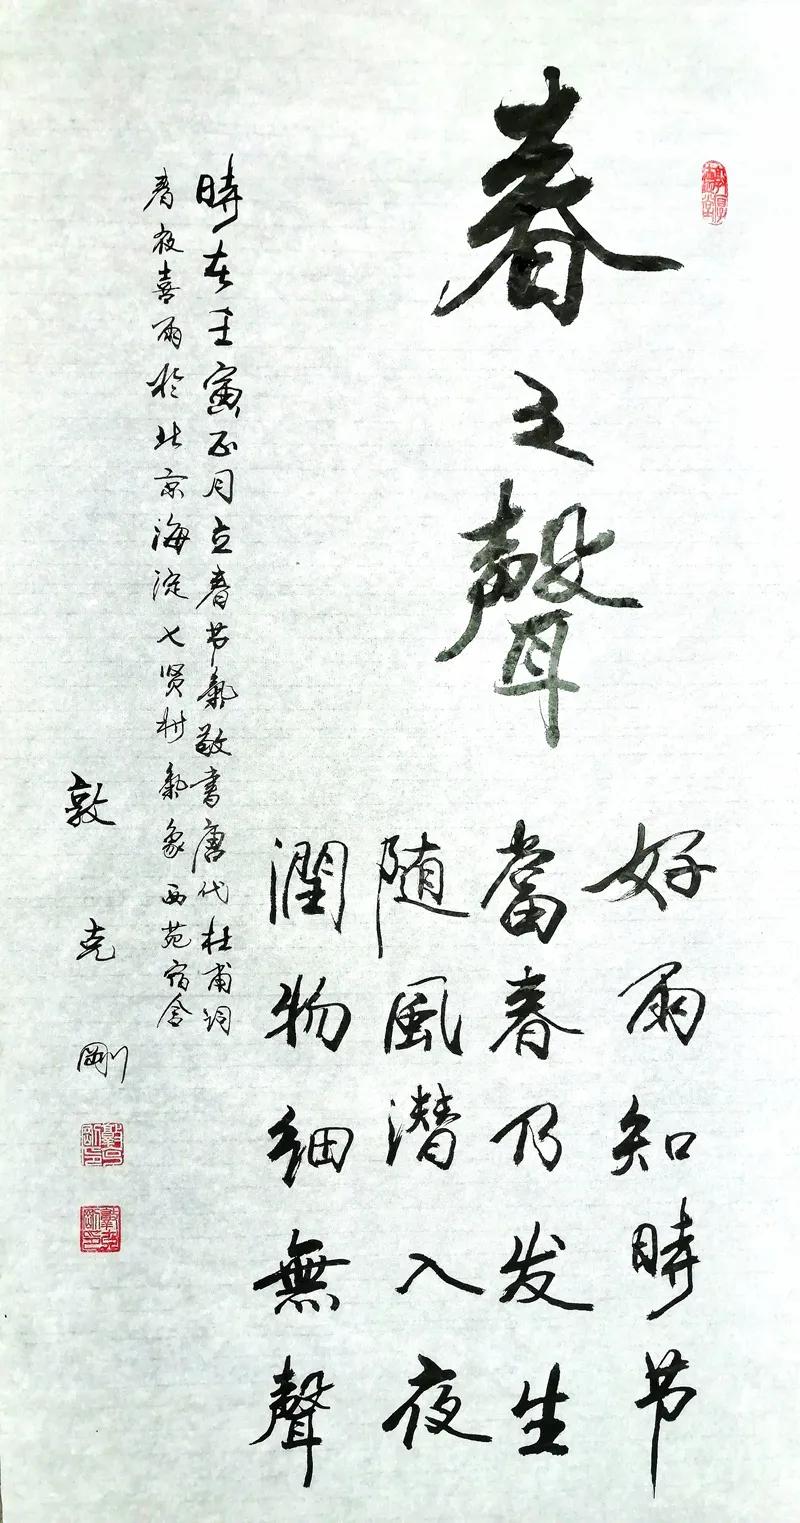 春之聲
好雨知時节
當春乃发生
随風潜入夜
潤物细無聲
時在壬寅正月立春节氣敬書唐代杜甫词
春夜喜雨於北京海淀七贤村氣象西苑宿舍
敦克剛